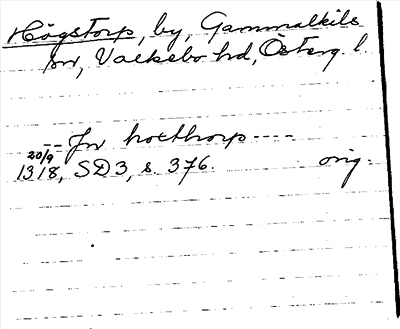 Högstorp, by, Gammalkils
sn, Valkebo hd, Österg. l.
-- Jn hoxthorp ----
20/9
1318, SD 3, s. 376. orig.